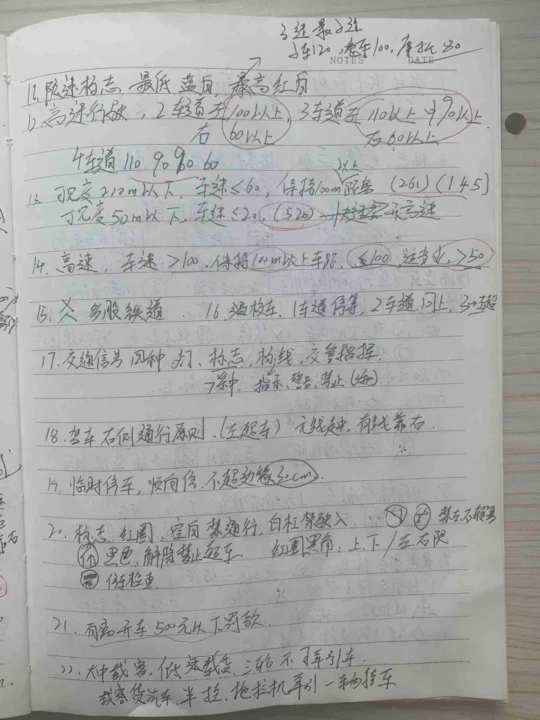 高速最高速
小车120，客车100，摩托80
NOTES DATE
11.限速标志 最低蓝白，最高红白
12.高速行驶，2车道左100以上，3车道左110以上 中90以上
右60以上 右60以上
4车道 110 90 90 60
13.可见度200m以下 车速≤60，保持100m距离 (261)(145)
可见度50m以下，车速≤20，(520) 高速
14.高速，车速>100，保持100m以上车距，≤100，>50
15. 多股铁道 16.遇校车，1车道停等，2车道同上，3
17.交通信号 四种 灯、标志，标线，交警指挥
3种 指示、警告、禁止
18.驾车右侧通行原则，(左超车) 无线走中，有线靠右
19.临时停车，顺向停，不超边缘30cm
20.标志，红圈，空白禁通行，白杠禁驶入
黑色，解除禁止超车 红圈黑角，上下/左右限
停车检查
21. 开车500元以下罚款
22.大中载客，低速载货 三轮不可牵引车
载客货汽车，半挂，拖拉机牵引一车挂车